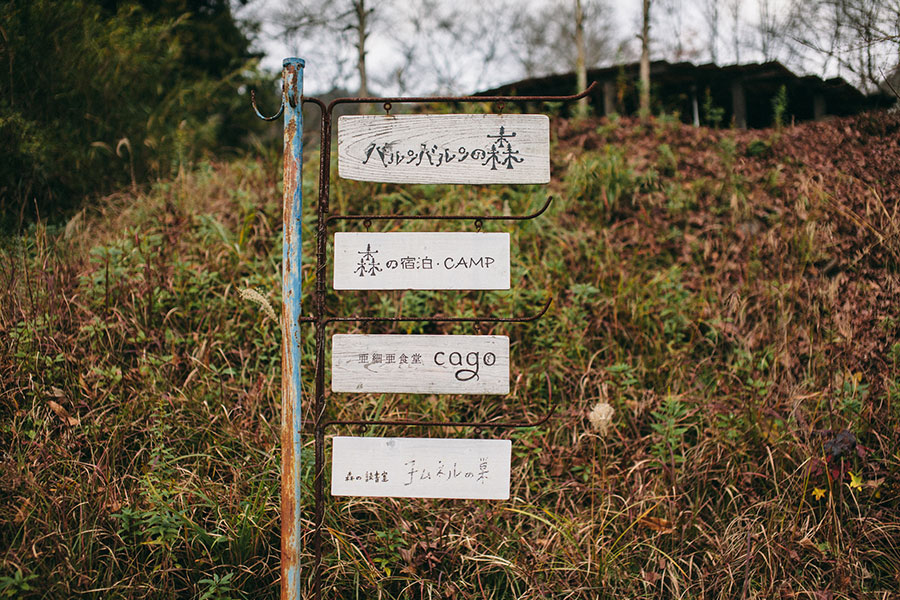 バルンバルンの森
森の宿泊・CAMP
亜細亜食堂 cago
森の読書室 チムネルの巣